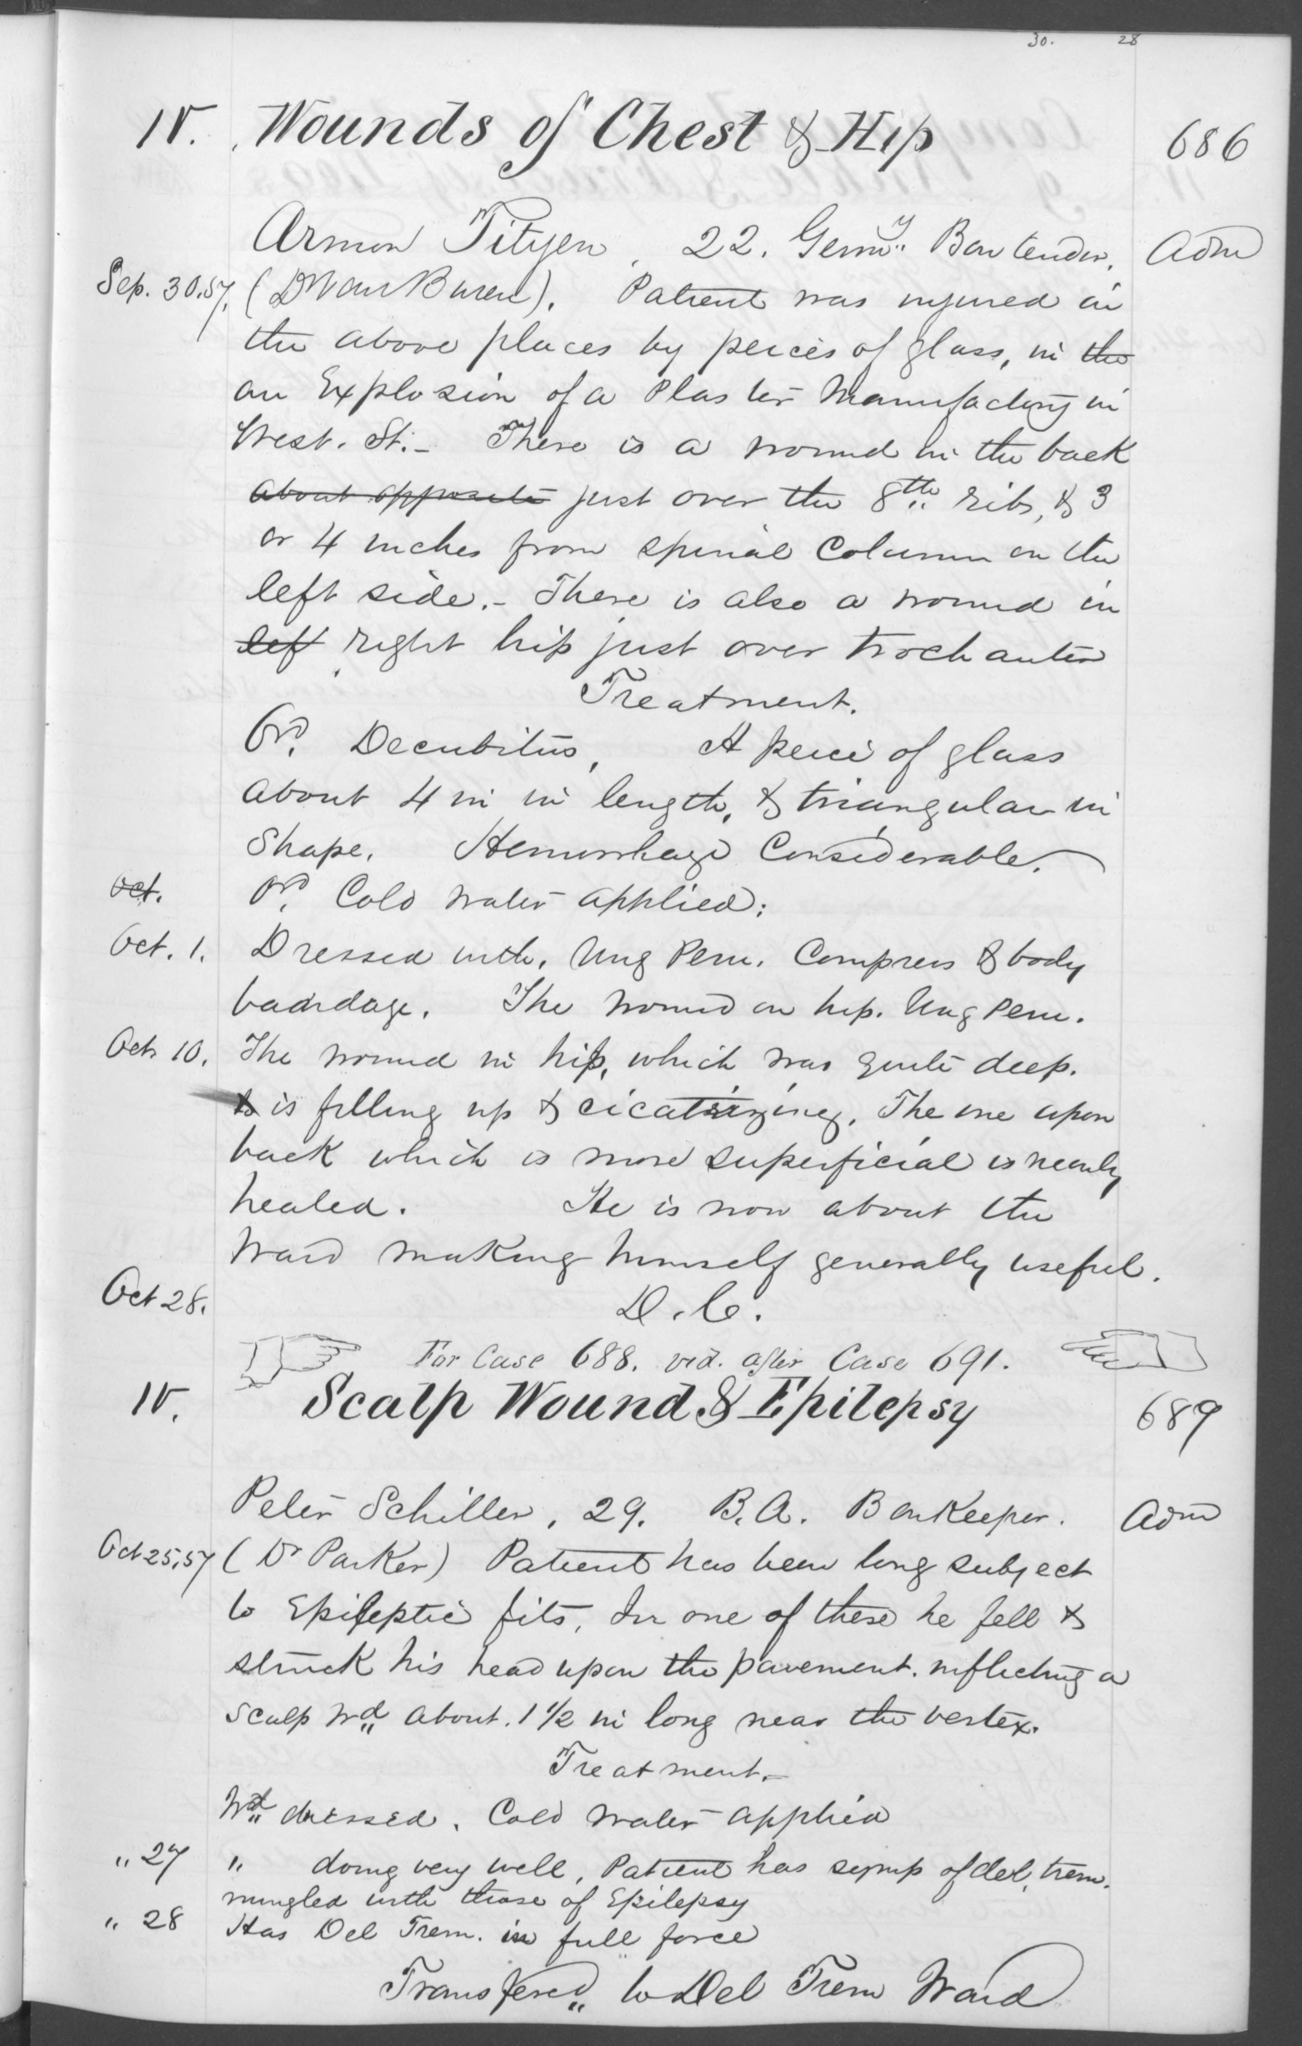 30. 28
IV. Wounds of Chest & Hip 686
Armon Tityen, 22. Germy. Bartender. Adm
Sep. 30, 57. (Dr Van Buren). Patient was injured in
the above places by peices of glass, in the
an Explosion of a Plaster Manufactory in
West. St. - There is a wound in the back
about opposite just over the 8th rib, & 3
or 4 inches from spinal Column on the
left side. - There is also a wound in
lef right hip just over trochanter
Treatment.
Ord. Decubitus, A peice of glass
about 4 in in length, & triangular in
Shape. Hemorrhage Considerable.
Oct. Ord. Cold water applied:
Oct. 1. Dressed with. Ung Peru. Compress & body
bandage. The wound on hip. Ung Peru.
Oct. 10. The wound in hip, which was quite deep.
& is filling up & cicatrizing. The one upon
back which is more superficial is nearly
healed. He is now about the
Ward making himself generally useful.
Oct 28. D. C.
For Case 688. vid. after Case 691.
IV. Scalp Wound & Epilepsy 689
Peter Schiller, 29. B.A. Barkeeper. Adm
Oct 25, 57 (Dr Parker) Patient has been long subject
to Epileptic fits, In one of these he fell &
struck his head upon the pavement. inflicting a
scalp wd about. 1 1/2 in long near the vertex.
Treatment. -
Wd dressed. Cold water applied
" 27 " doing very well, Patient has symp of del. trem.
mingled with those of Epilepsy
" 28 Has Del Trem. in full force
Transfered to Del Trem Ward